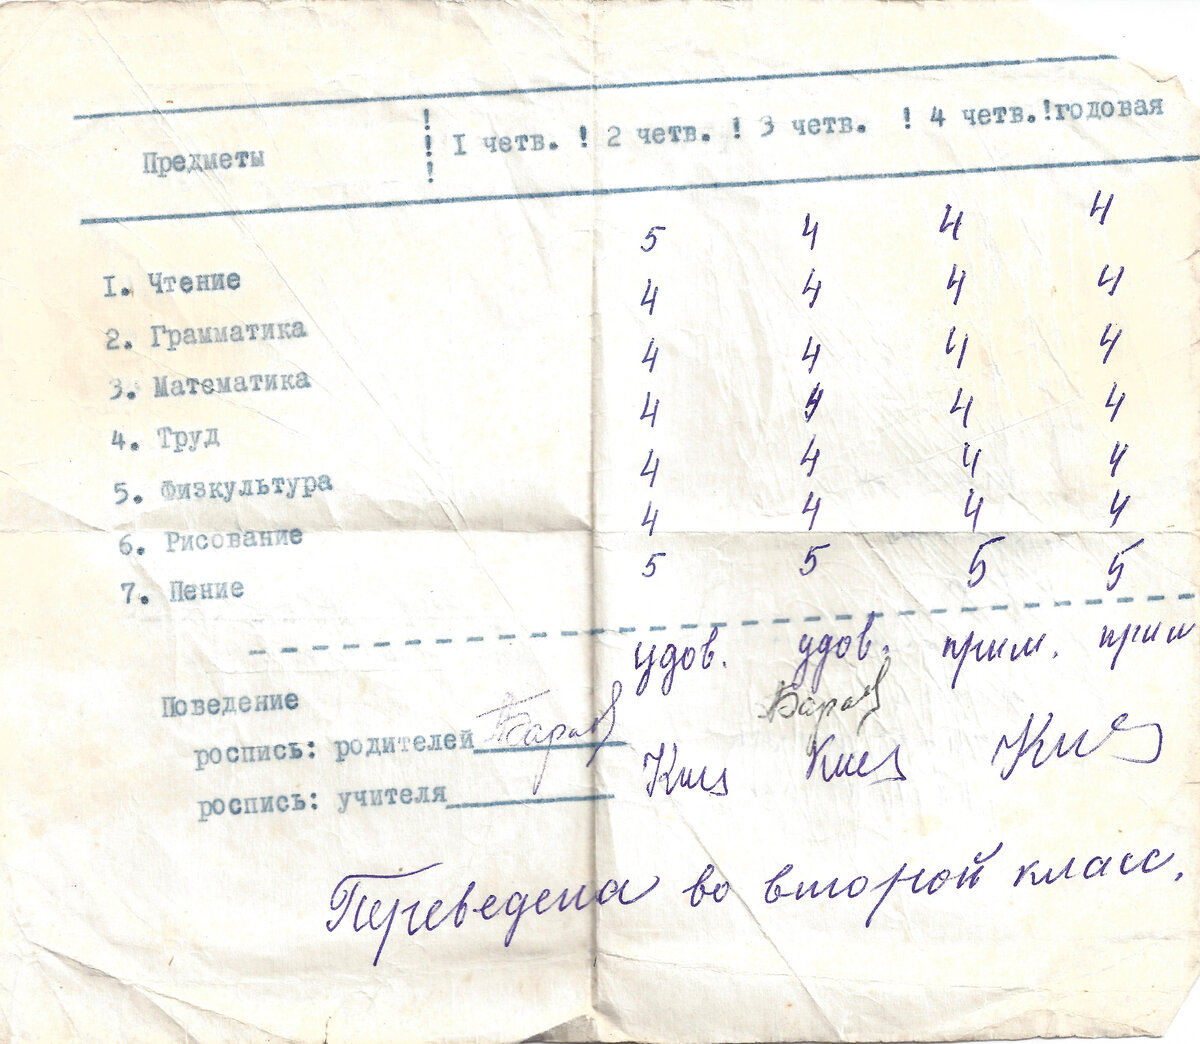 Предметы ! I четв. ! 2 четв. ! 3 четв. ! 4 четв.!годовая
I. Чтение 5 4 4 4
2. Грамматика 4 4 4 4
3. Математика 4 4 4 4
4. Труд 4 4 4 4
5. Физкультура 4 4 4 4
6. Рисование 4 4 4 4
7. Пение 5 5 5 5
Поведение удов. удов. прим. прим
роспись: родителей
роспись: учителя
Переведена во второй класс.